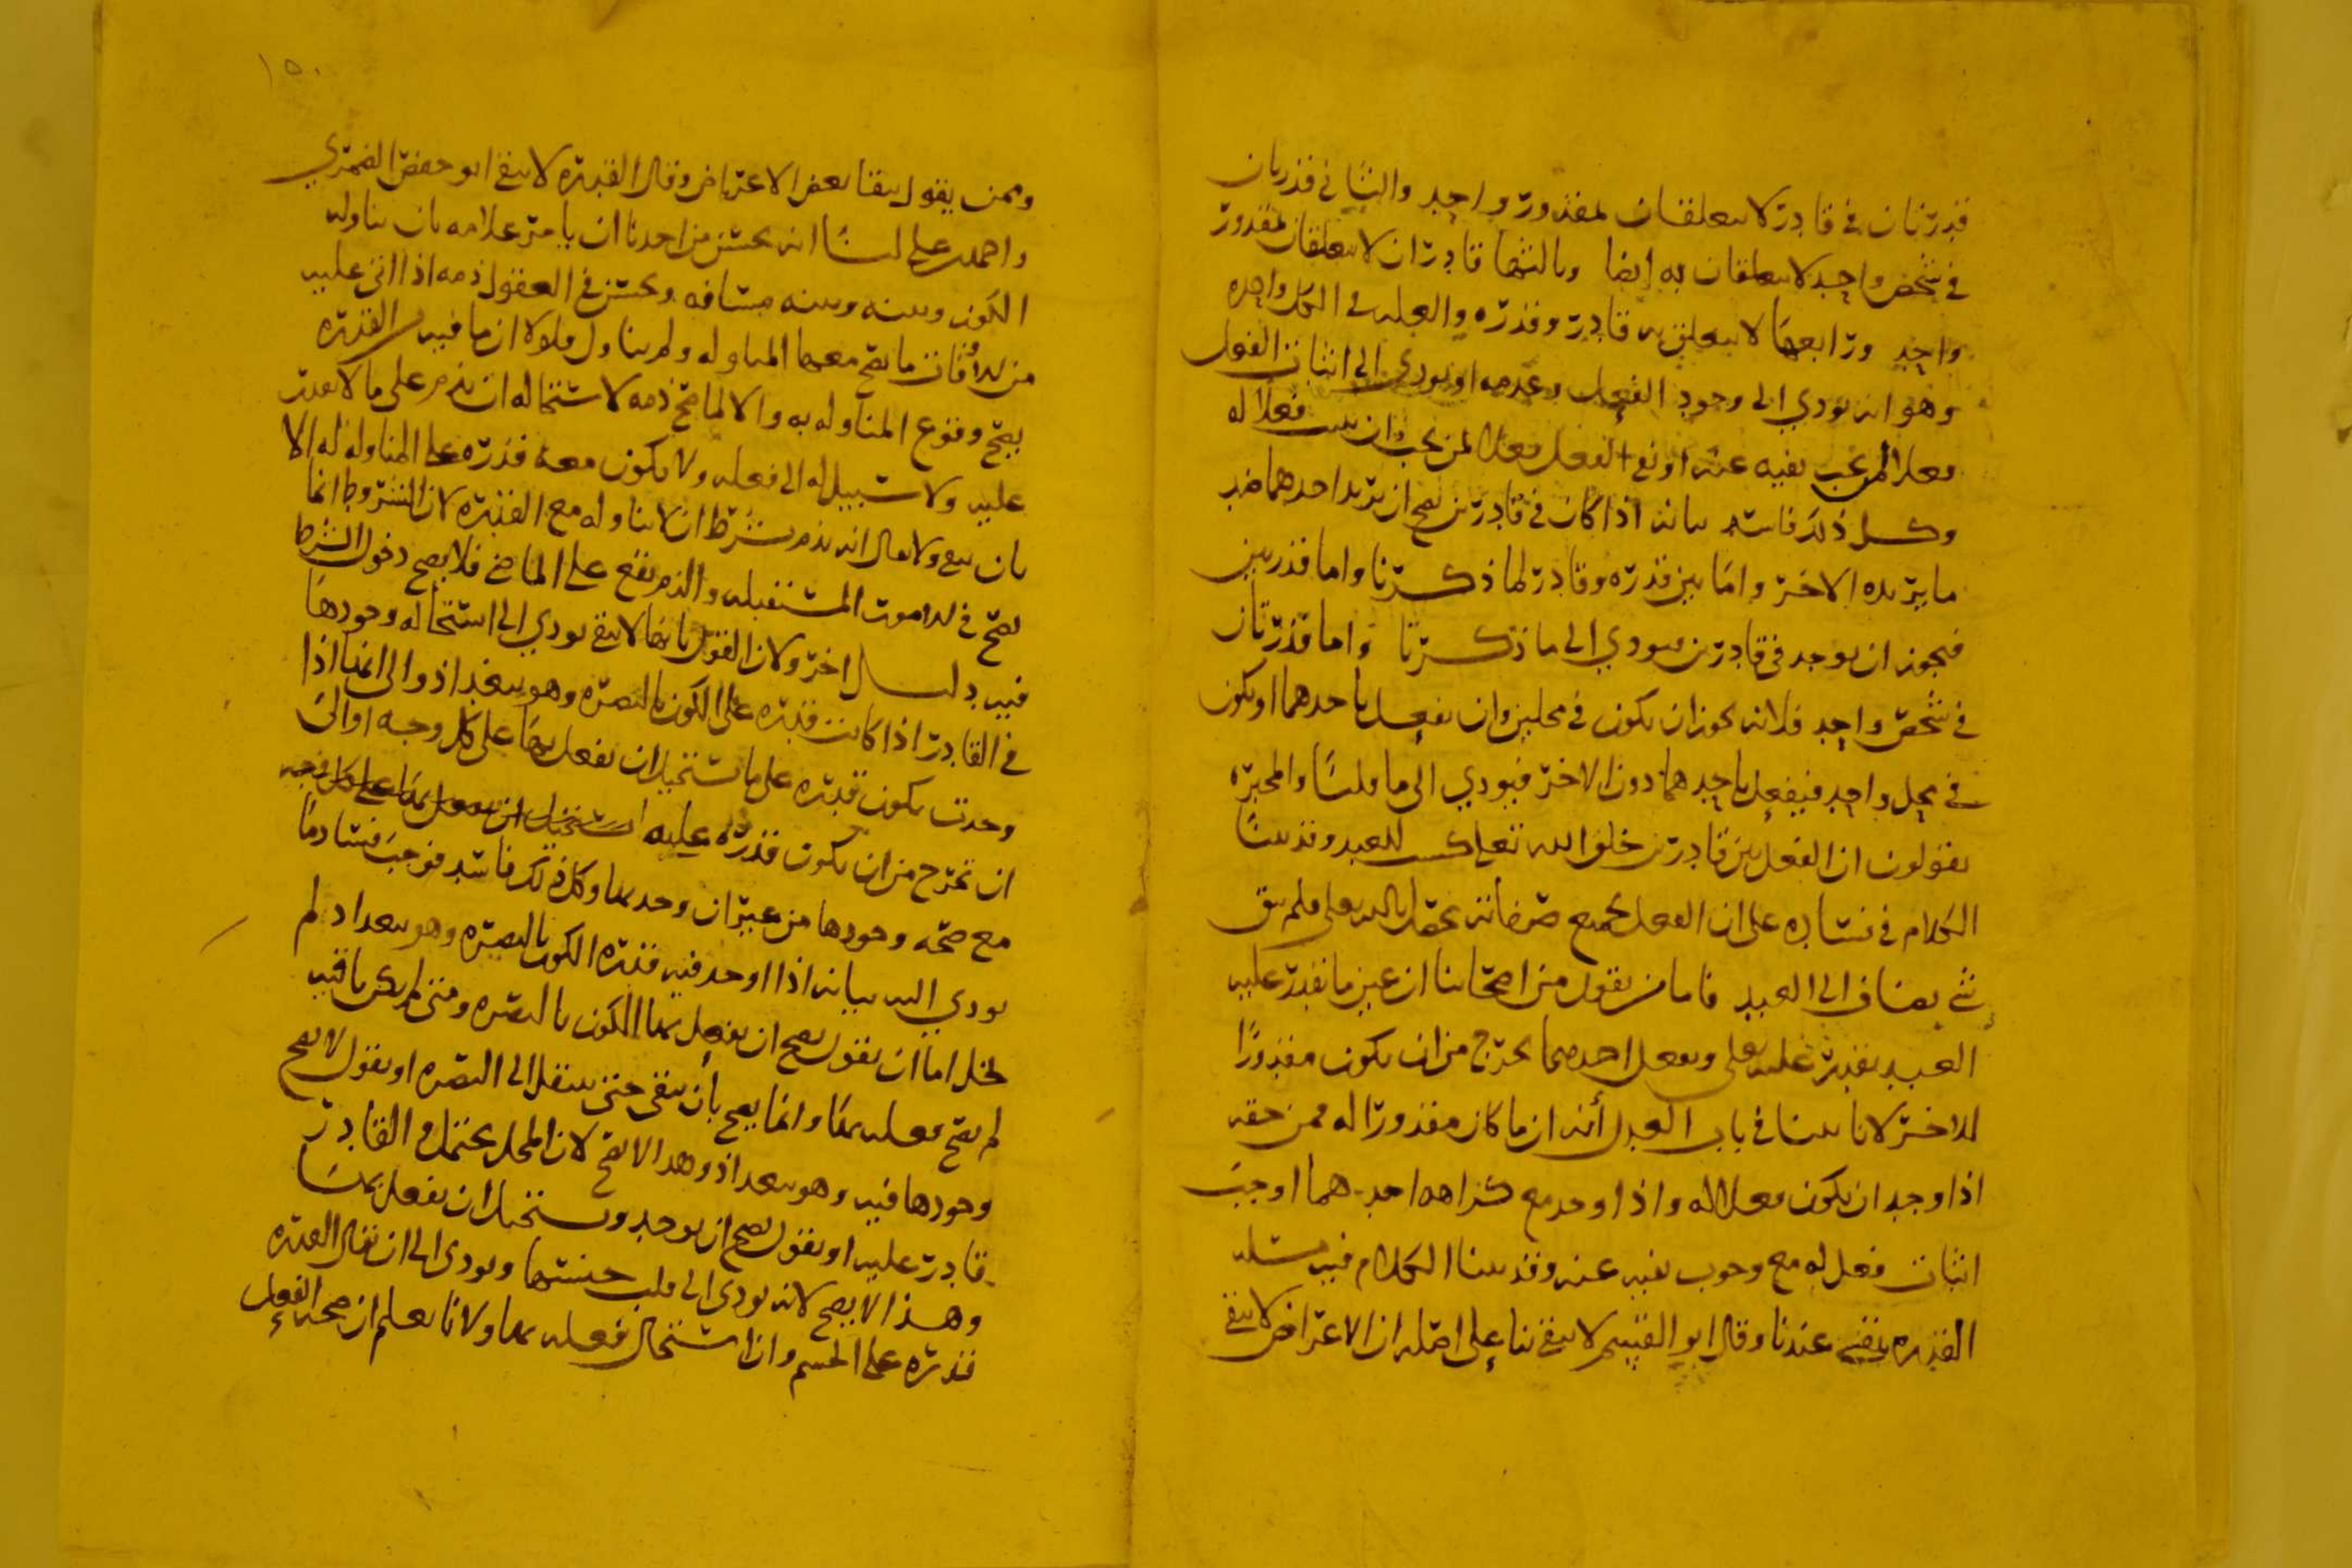 قدرتان في قادر لا يتعلقان لمقدور واحد والثاني قدرتان
في شخص واحد لا يتعلقان به ايضا وثالثها قادران لا يتعلقان لمقدور
واحد ورابعها لا يتعلق به قادر وقدره والعله في الكل واحده
وهو انه يودي الى وجود الفعل وعدمه او يودي الى اثبات الفعل
فعلا لمن يجب نفيه عنه او نفي الفعل فعلا لمن يجب ان يثبت فعلا له
وكل ذلك فاسد بيانه اذا كان في قادرين يصح ان يريد احدهما ضد
ما يريده الاخر واما بين قدره وقادر لما ذكرنا واما قدرتين
فيجوز ان يوجد في قادرين فيودي الى ما ذكرنا واما قدرتان
في شخص واحد فلانه يجوز ان يكون في محلين وان يفعل باحدهما او يكون
في محل واحد فيفعل باحدهما دون الاخر فيودي الى ما قلنا والمجبره
يقولون ان الفعل بين قادرين خلق الله تعلى كسب للعبد وقد بينا
الكلام في فساده على ان الفعل بجميع صفاته يحصل بالله تعلى فلم يبق
شي يضاف الى العبد فاما من يقول من اصحابنا ان عين ما يقدر عليه
العبد يقدر عليه تعلى وبفعل احدهما يخرج من ان يكون مقدورًا
للاخر لانا بينا في باب العدل أنه ان ما كان مقدورا له فمن حقه
اذا وجد ان يكون فعلا له واذا وجد مع كراهه احدهما اوجب
اثبات فعل له مع وجوب نفيه عنه وقد بينا الكلام فيه مسله
القدره تبقى عندنا وقال ابو القسم لا تبقى بنا على اصله ان الاعراض لا تبقى
١٥٠
وممن يقول ببقا بعض الاعراض وقال القدره لا تبقى ابو حفص
واحمد بن علي لنا انه يحسن من احدنا ان يامر غلامه بان يناوله
الكوز وبينه وبينه مسافه ويحسن في العقول ذمه اذا اتى عليه
من الاوقات ما يصح معها المناوله ولم يناول فلولا ان ما فيه من القدره
يصح وقوع المناوله به والا لما صح ذمه لاستحاله ان يذم على ما لا يقدر
عليه ولا سبيل له الى فعله ولا يكون معه قدره على المناوله له الا
بان تبقى ولا يقال انه يذم بشرط ان لا يناوله مع القدره لان الشروط انما
تصح في الامور المستقبله والذم يقع على الماضي فلا يصح دخول الشرط
فيه دليل اخر ولان القول بانها لا تبقى يودي الى استحاله وجودها
في القادر اذا كانت قدره على الكون بالبصره وهو ببغداذ والى انها اذا
وجدت يكون قدره على ما يستحيل ان يفعل بها على كل وجه او الى
ان تخرج من ان يكون قدره عليه
مع صحه وجودها من غير ان وجد بها وكل ذلك فاسد فوجب فساد ما
يودي اليه بيانه اذا اوجد فيه قدره الكون بالبصره وهو ببغداد لم
يخل اما ان يقول يصح ان يفعل بها الكون بالبصره ومتى لم يكن باقيه
لم يصح فعله بها وانما يصح بأن تبقى حتى ينتقل الى البصره او يقول لا يصح
وجودها فيه وهو ببغداذ وهذا لا يصح لان المحل يحتمل والقادر
قادر عليه او يقول يصح ان يوجد ويستحيل ان يفعل بها
وهذا لا يصح لانه يودي الى قلب جنسها ويودي الى ان يقال القدره
قدره على الجسم وان استحال فعله بها ولانا نعلم ان صحه الفعل